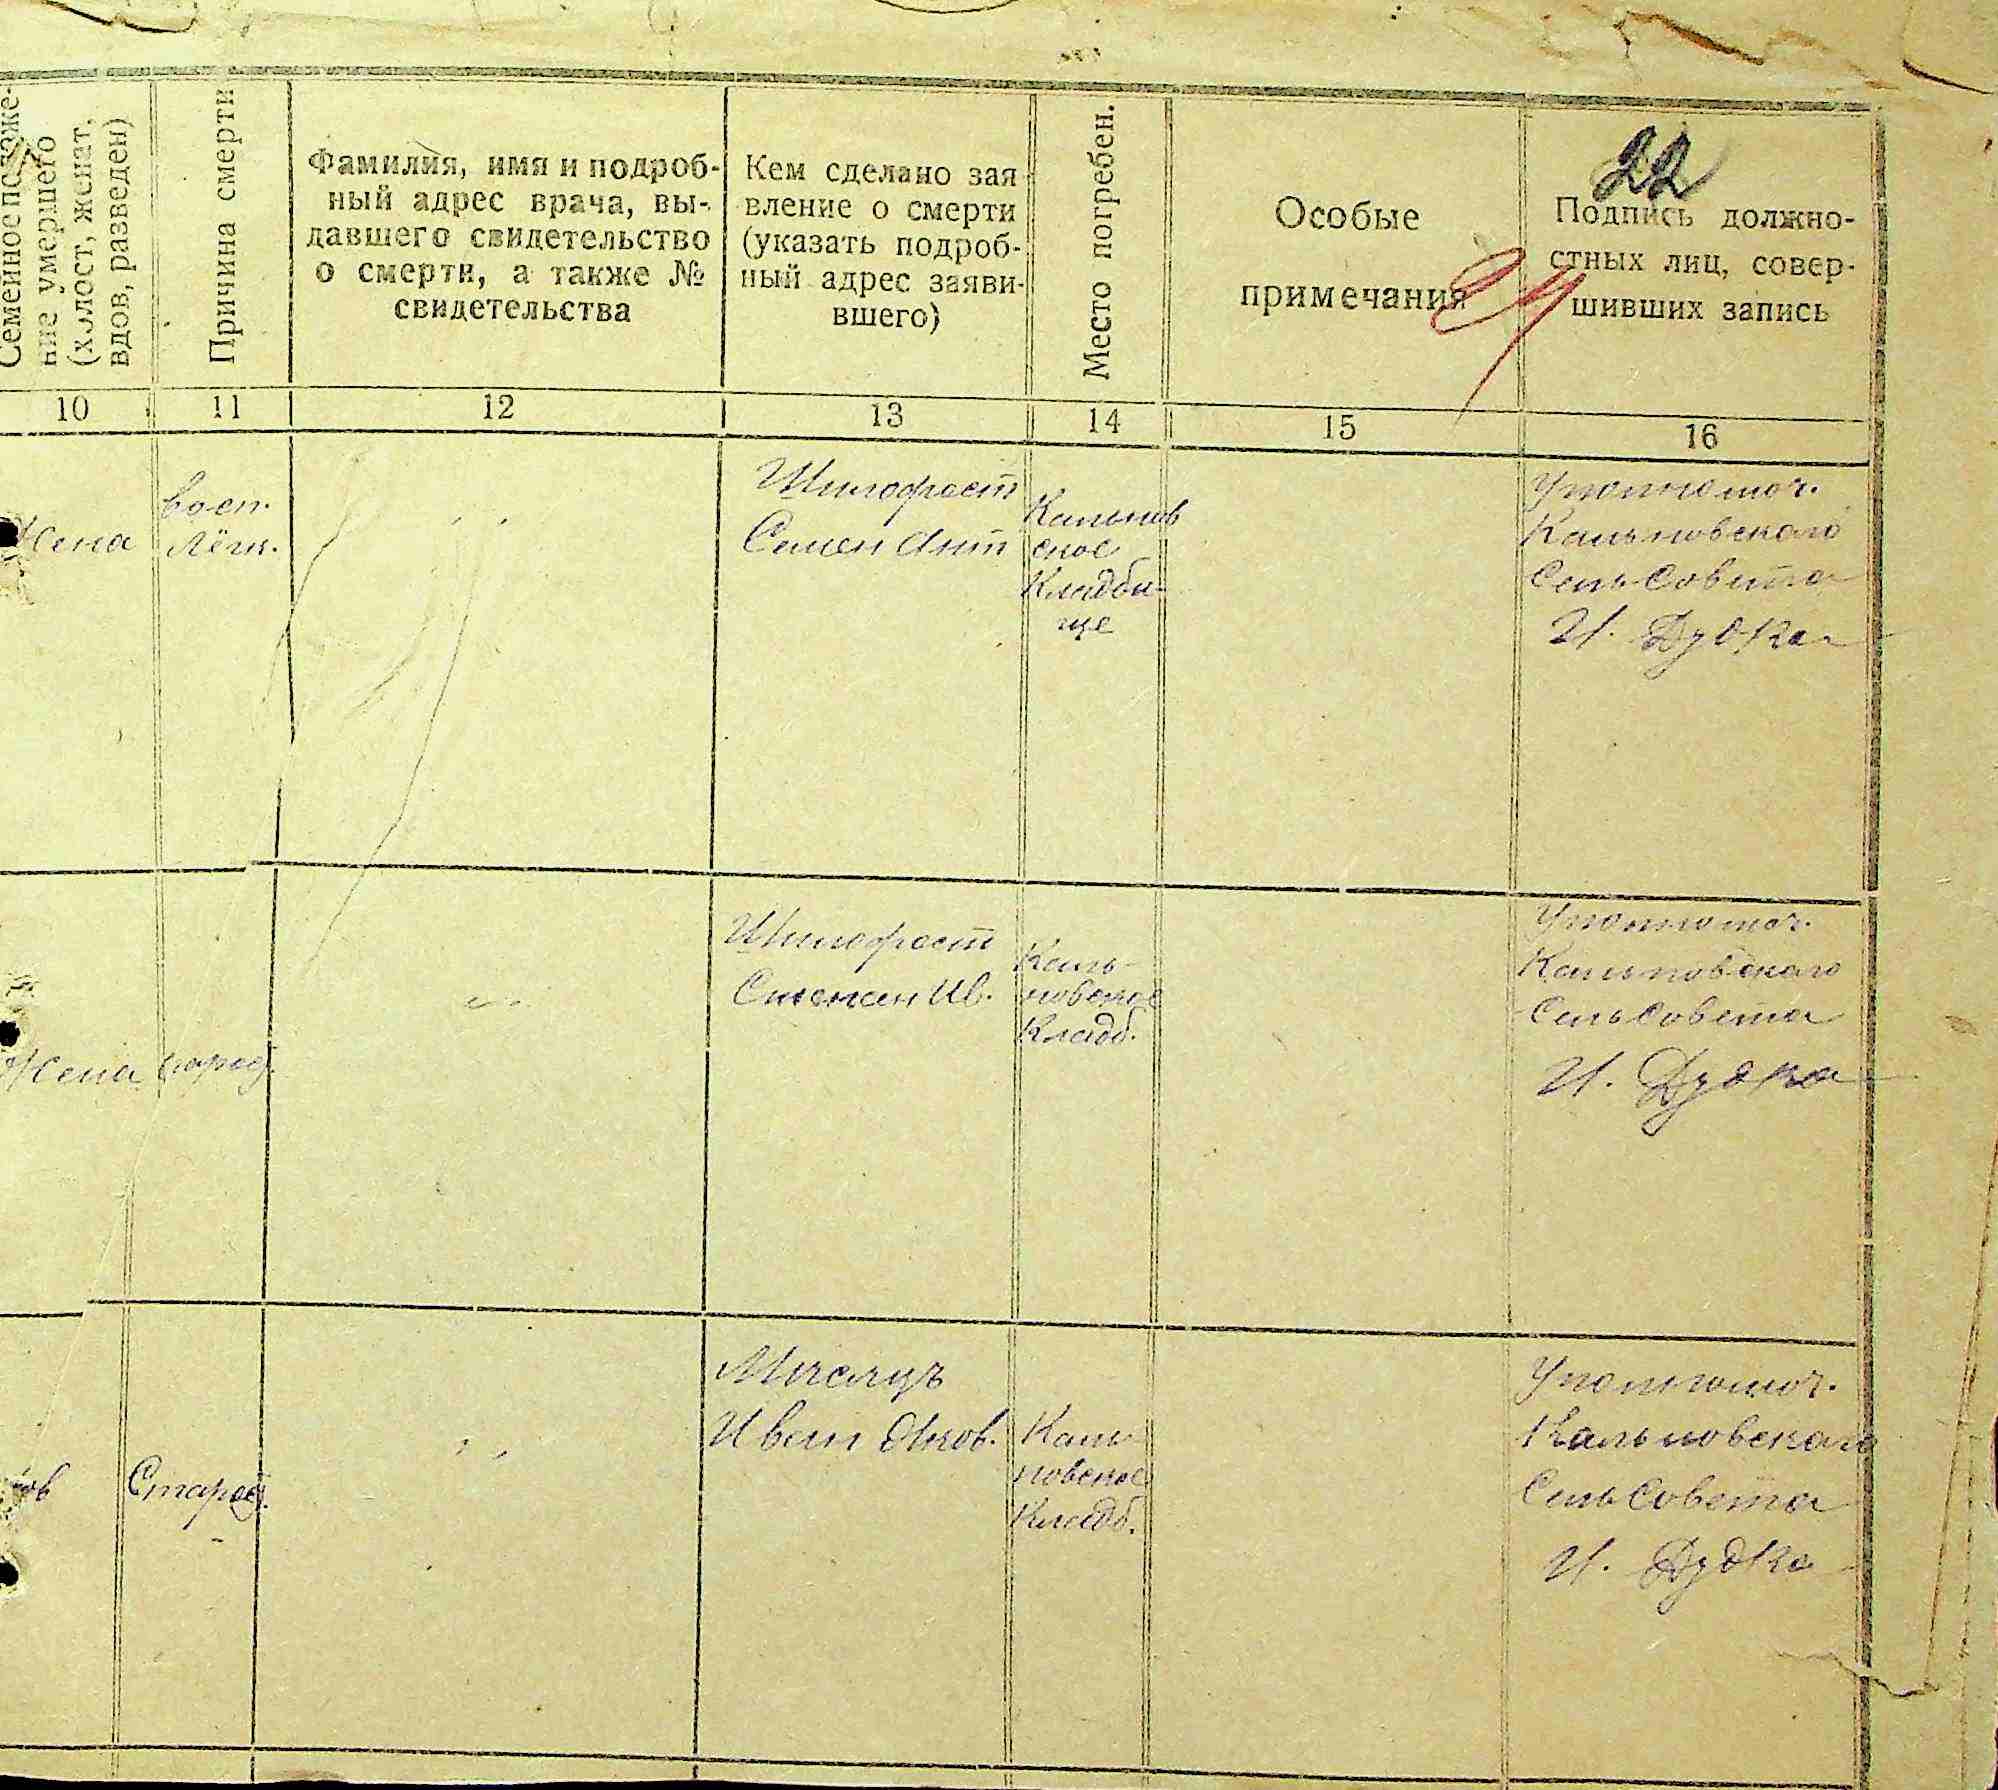 22
24
Семейное положе-
ние умершего
(холост, женат,
вдов, разведен)
Причина смерти
Фамилия, имя и подроб-
ный адрес врача, вы-
давшего свидетельство
о смерти, а также №
свидетельства
Кем сделано зая
вление о смерти
(указать подроб-
ный адрес заяви-
вшего)
Место погребен.
Особые
примечания
Подпись должно-
стных лиц, совер-
шивших запись
10 11 12 13 14 15 16
Жена
восп.
Лёгк.
Шилофост
Семен Ант
Кальнов
ское
Кладби-
ще
Уполномоч.
Кальновского
СельСовета
И. Дудка
Жена
Шилофост
Степан Ив.
Каль-
новское
Кладб.
Уполномоч.
Кальновского
СельСовета
И. Дудка
Старос.
Иван Яков.
Каль
новское
Кладб.
Уполномоч.
Кальновского
СельСовета
И. Дудка